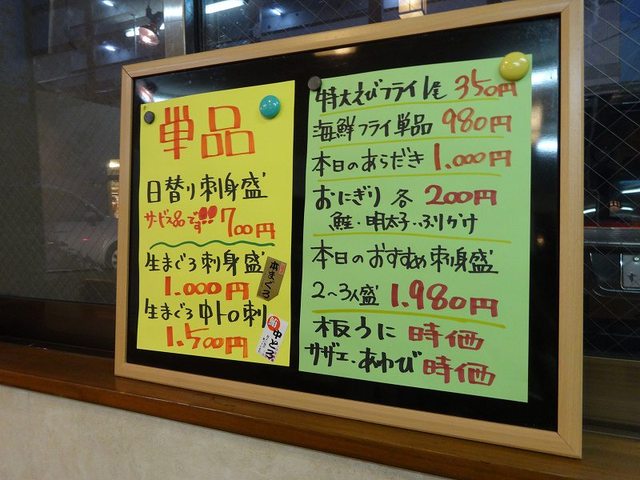 単品
日替り刺身盛
サービス品です!! 700円
生まぐろ刺身盛
1.000円
本まぐろ
生まぐろ中トロ刺
1.500円
中とろ
特大えびフライ1尾 350円
海鮮フライ単品 980円
本日のあらだき 1.000円
おにぎり 各 200円
鮭・明太子・ふりかけ
本日のおすすめ刺身盛
2～3人盛 1.980円
板うに 時価
サザエ・あわび 時価